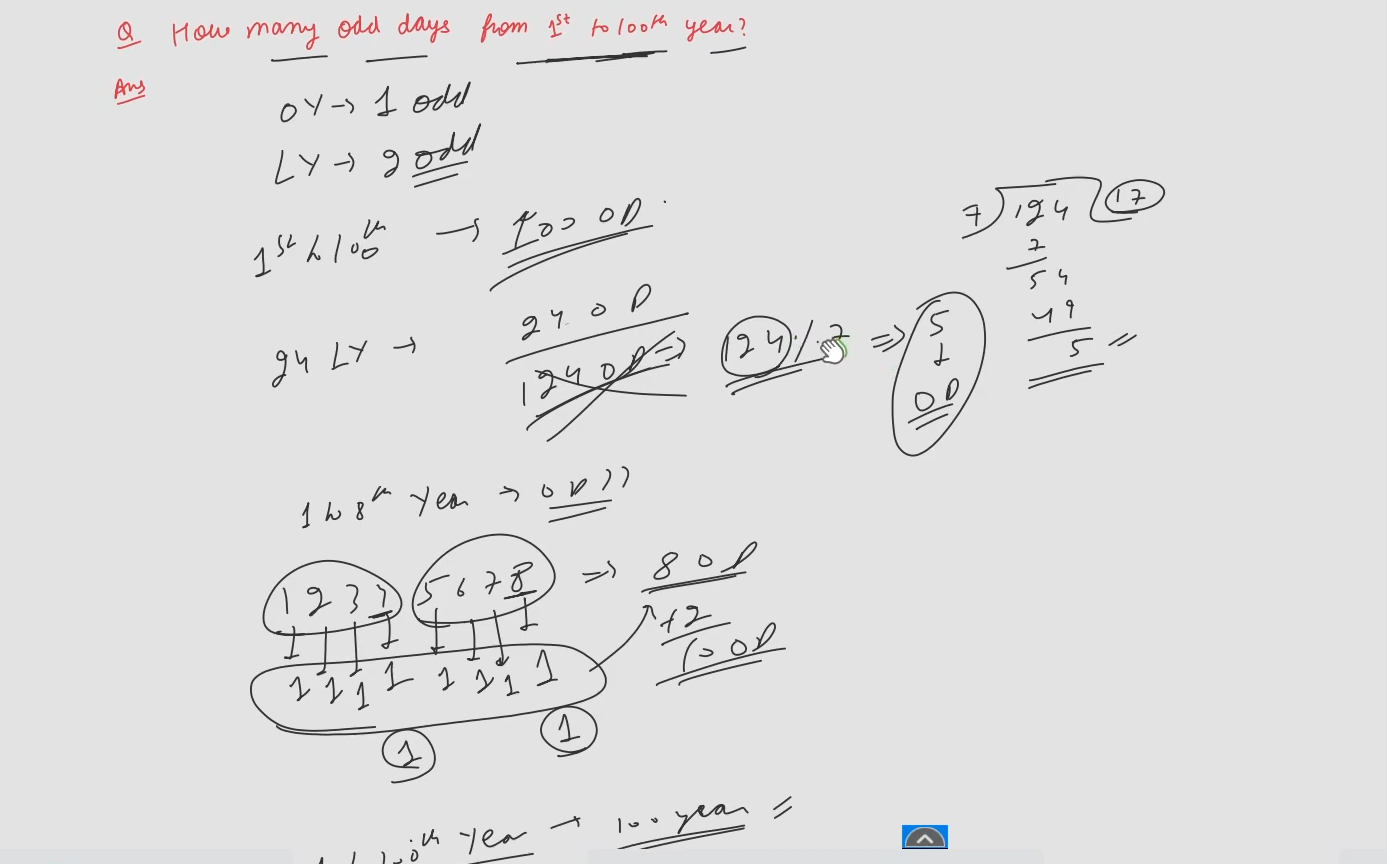 Q How many odd days from 1st to 100th year?
Ans
OY → 1 odd
LY → 2 odd
1st to 100th → 100 OD.
24 LY → 24 OD
124 OD ⇒ 124 / 7 ⇒ 5 OD
7 ) 124 ( 17
7
54
49
5
1 to 8th Year → OD ??
1 2 3 4 5 6 7 8 ⇒ 8 OD
+2
10 OD
1 1 1 1 1 1 1 1
1 1
100th Year → 100 year =